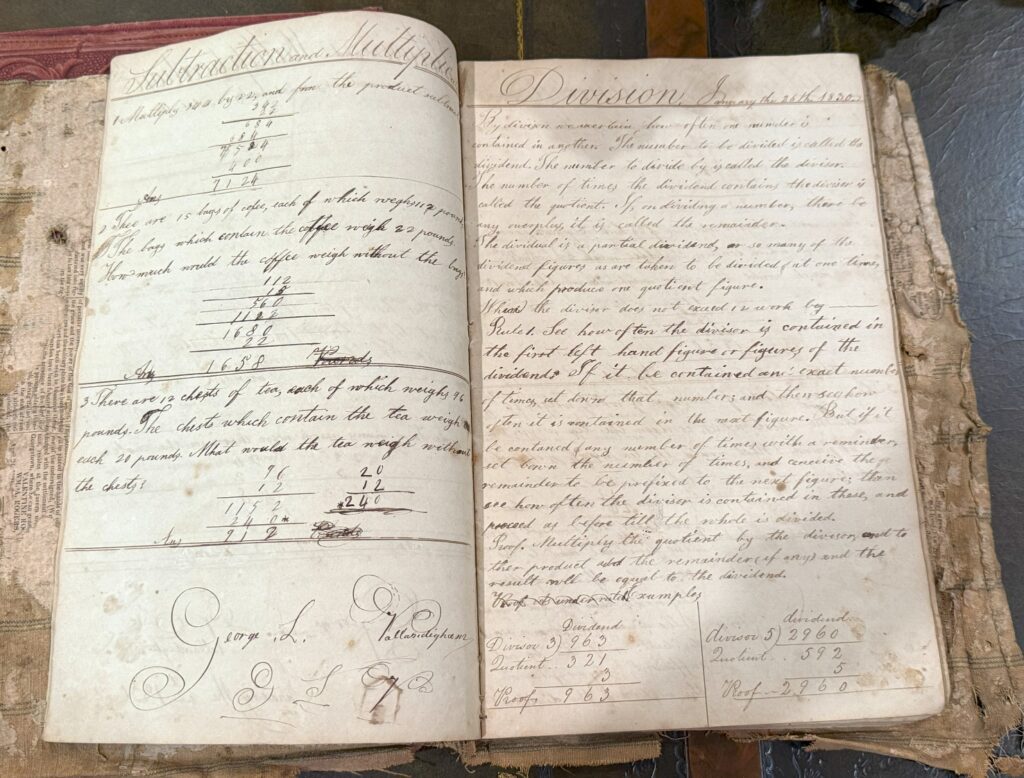 Subtraction and Multiplic
1 Multiply 342 by 22, and from the product subtract
342
22
684
684
7524
400
Ans 7124
2 Thee are 15 bags of cofee, each of which weighs 112 pound
The bags which contain the coffee weigh 22 pounds.
How much would the coffee weigh without the bags
112
15
560
112
1680
22
Ans 1658 Pounds
3 There are 12 chests of tea, each of which weighs 96
pounds. The chests which contain the tea weigh
each 20 pounds. What would the tea weigh without
the chests?
96 20
12 12
1152 *240
240*
Ans 912 Pounds
George L. Vallandigham
G L V
Division January the 26th 1830.
By division we ascertain how often one number is
contained in another. The number to be divided is called the
dividend. The number to divide by is called the divisor.
The number of times the dividend contains the divisor is
called the quotient. If, on dividing a number, there be
any overplus, it is called the remainder.
The dividual is a partial dividend, or so many of the
dividend figures as are taken to be divided at one time,
and which produces one quotient figure.
When the divisor does not exceed 12 work by
Rule 1. See how often the divisor is contained in
the first left hand figure or figures of the
dividend: If it be contained an exact number
of times, set down that number; and then see how
often it is contained in the next figure. But if it
be contaned any number of times with a remainder,
set down the number of times, and conceive the
remainder to be prefixed to the next figure; than
see how often the divisor is contained in these, and
proceed as before till the whole is divided.
Proof. Multiply the quotient by the divisor, and to
ther product add the remainder, if any; and the
result will be equal to the dividend.
Examples
Dividend
Divisor 3) 963
Quotient .. 321
3
Proof -- 963
dividend
divisor 5) 2960
Quotient .. 592
5
Proof -- 2960